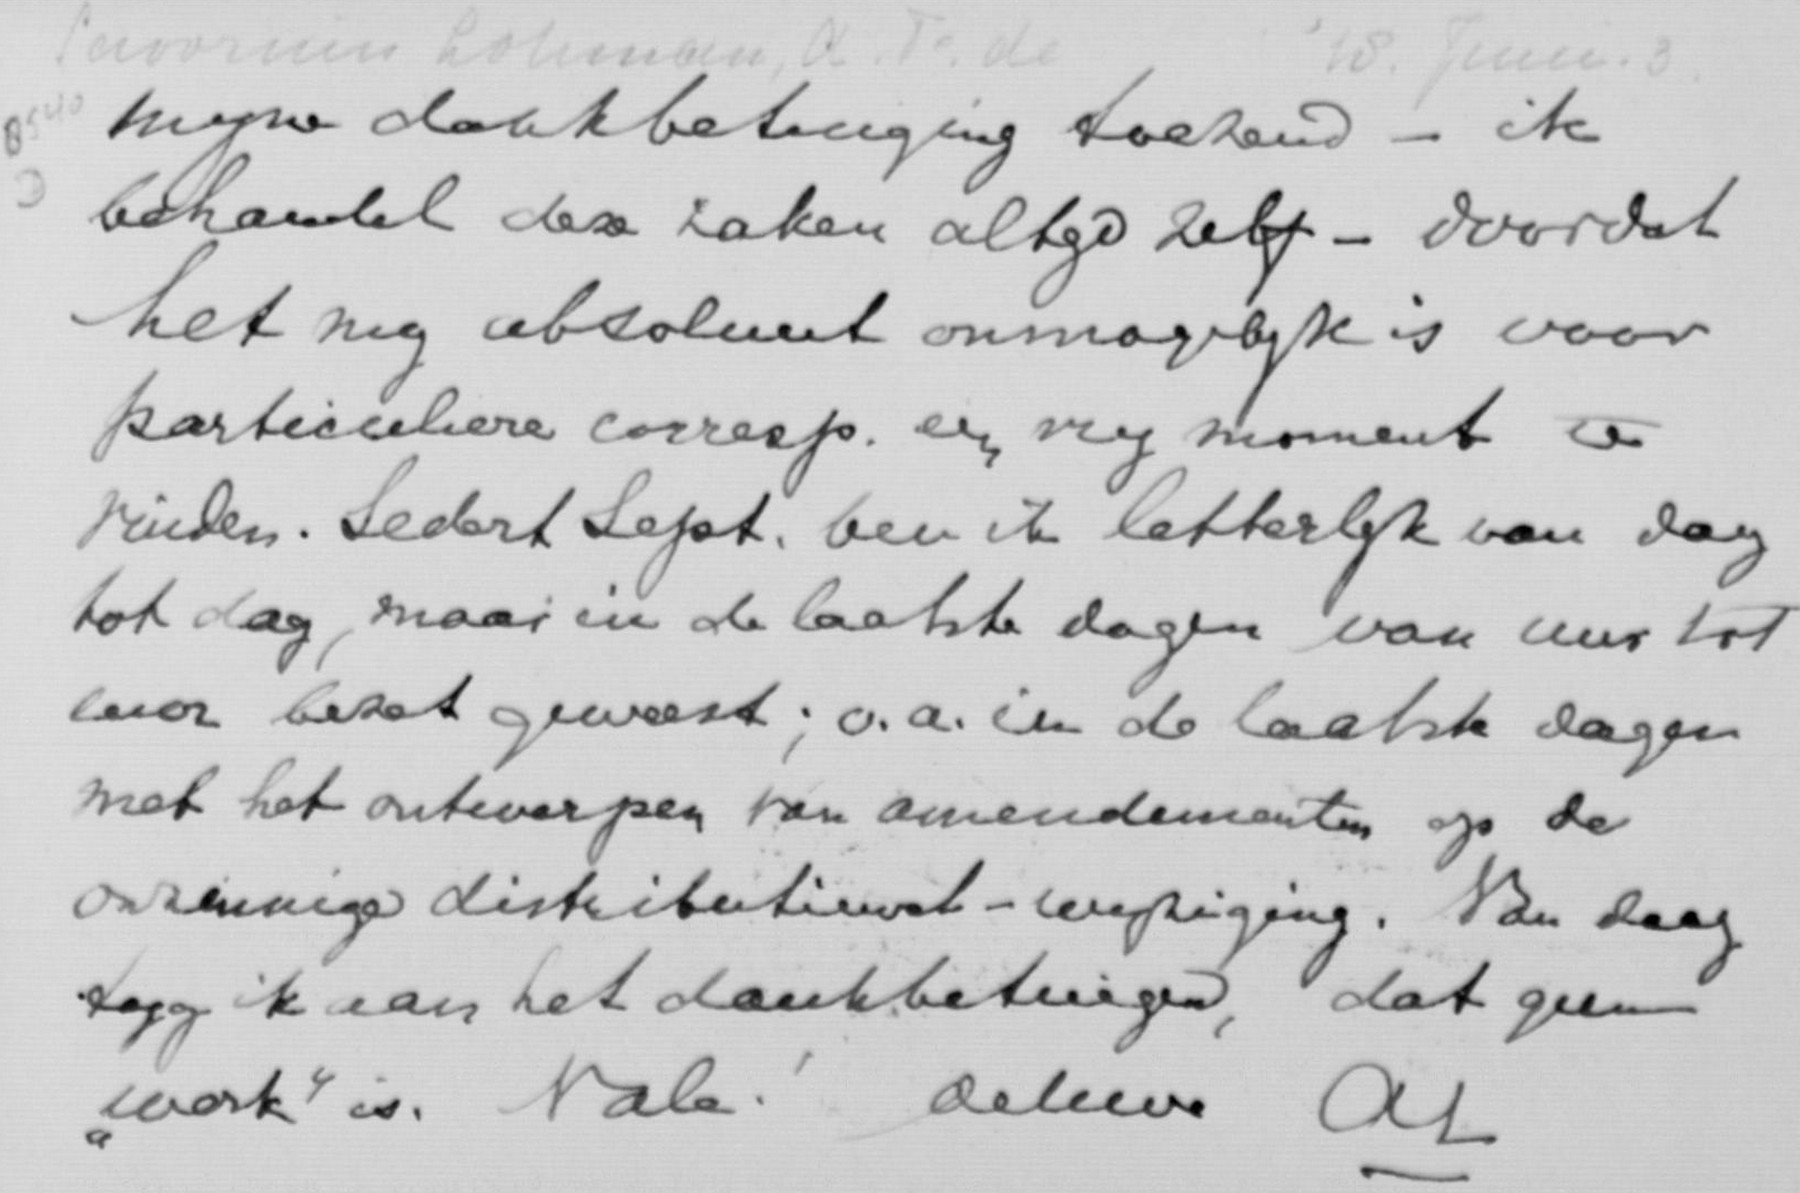 Savornin Lohman, A. F. de '18. Juni. 3.
B540
D
mijne dankbetuiging toezend – ik
behandel deze zaken altijd zelf – doordat
het mij absoluut onmogelijk is voor
particuliere corresp. een vrij moment te
vinden. Sedert Sept. ben ik letterlijk van dag
tot dag, maar in de laatste dagen van uur tot
uur bezet geweest; o.a. in de laatste dagen
met het ontwerpen van amendementen op de
onzinnige distributiewet-wijziging. Van daag
ik aan het dankbetuigen, dat geen
„werk" is. Vale! de Uwe AL